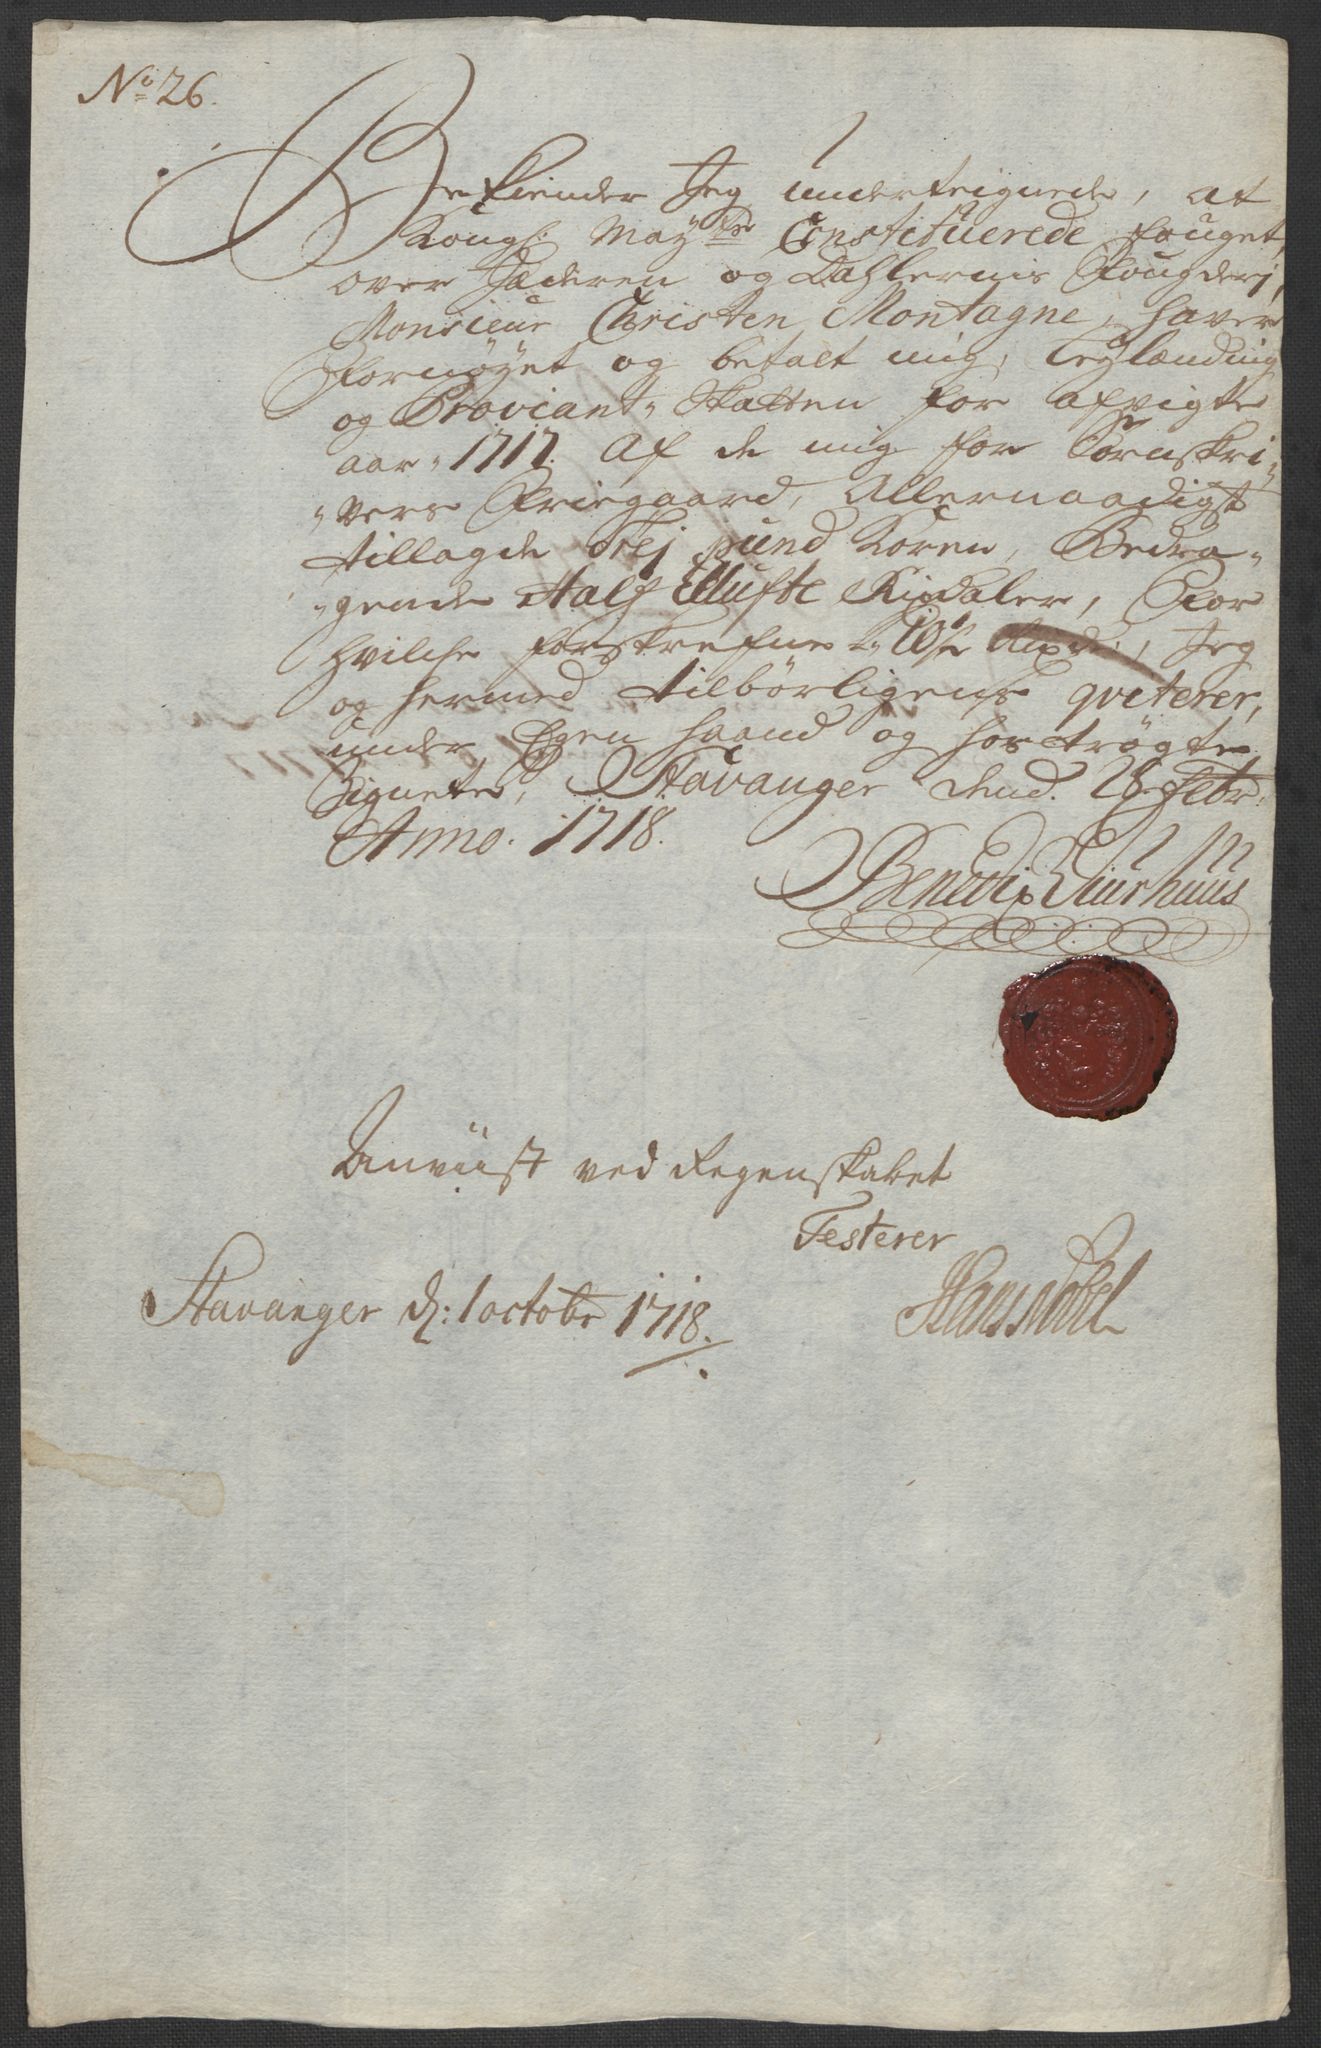 No 26.
Bekiender Jeg underteignede, at
Kongl: Mayts Constituerede fouget
over Jæderen og Dahlernis Fougderj,
Monsieur Christen Montagne, haver
fornøyet og betalt mig,
og Proviant-Skatten for afvigte
aar 1717. Af de mig for Sorenskri-
-vers Friegaard, Allernaadigst
tillagde Trej pund Koren, Bedra-
-gende Half Ellufte Rixdaler, For
hvilche forskrefne 10½ Rixdr:, Jeg
og hermed tilbørligens qviterer,
under Egen haand og hostrøgte
Signete, Stavanger dend. 28 Febr:
Anno. 1718.
Benedix Diurhuus
Anviist ved Regenskabet
Testerer
Stavanger d: 1 octobr 1718.
Hans Nobel